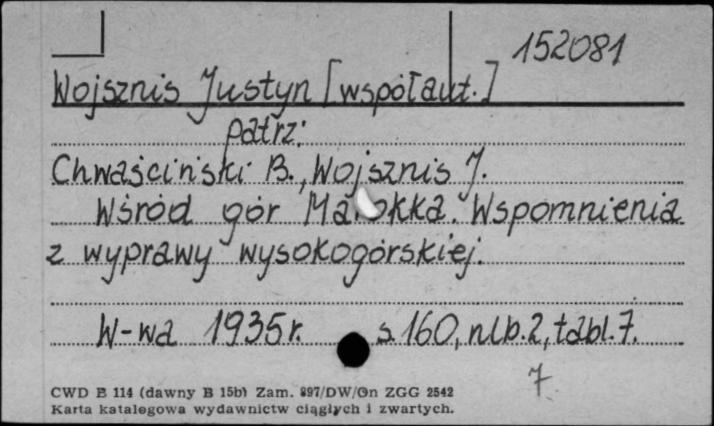 152081
Wojsznis Justyn [współaut.]
patrz:
Chwaściński B., Wojsznis J.
Wśród gór Marokka. Wspomnienia
z wyprawy wysokogórskiej.
W-wa 1935r. s. 160, nlb. 2, tabl. 7.
7
CWD B 114 (dawny B 15b) Zam. 897/DW/Gn ZGG 2542
Karta katalogowa wydawnictw ciągłych i zwartych.